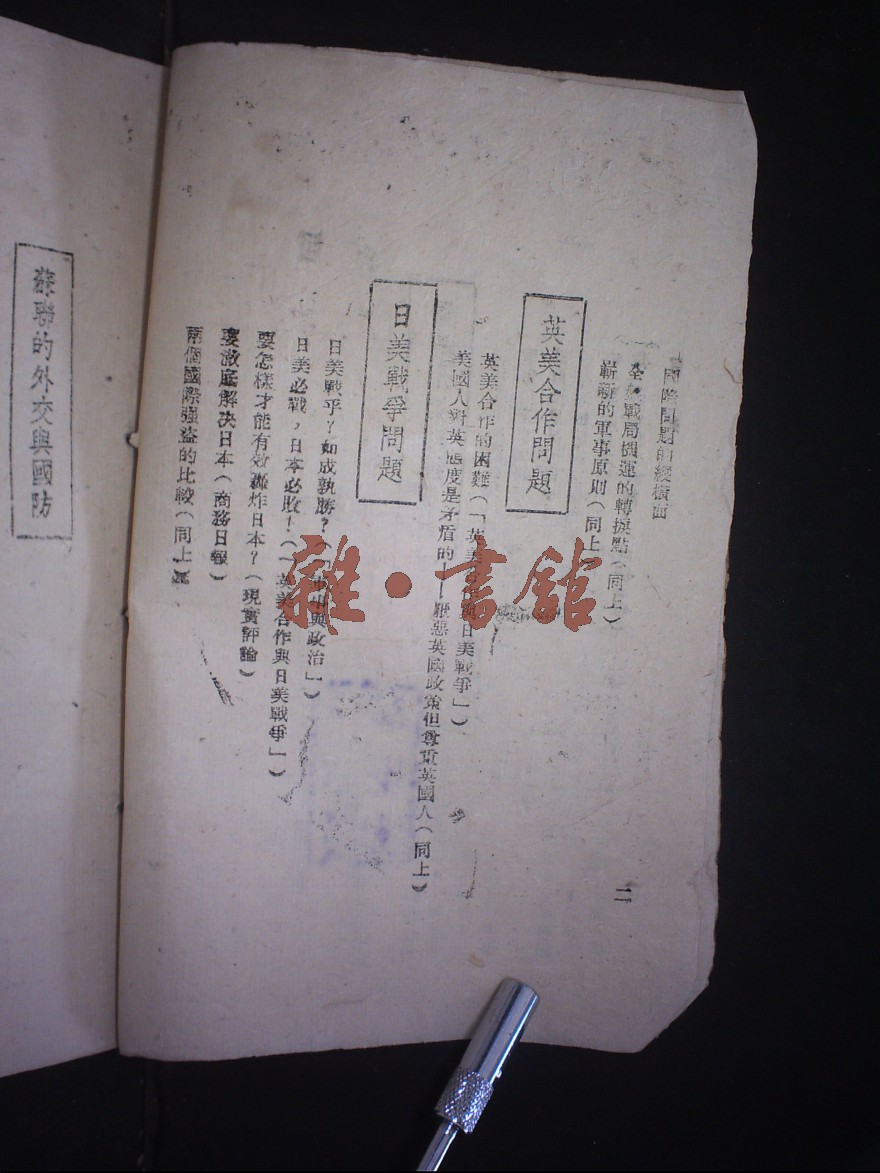 國際問題的縱橫面
全盤戰局機運的轉捩點(同上)
嶄新的軍事原則(同上
英美合作問題
英美合作的困難(「英美合作與日美戰爭」)
美國人對英態度是矛盾的——厭惡英國政策但尊重英國人(同上)
日美戰爭問題
日美戰乎?如成孰勝?(「 與政治」)
日美必戰,日本必敗!(「英美合作與日美戰爭」)
要怎樣才能有效轟炸日本?(現實評論)
要澈底解決日本(商務日報)
兩個國際强盜的比較(同上)
二
蘇聯的外交與國防
雜·書館